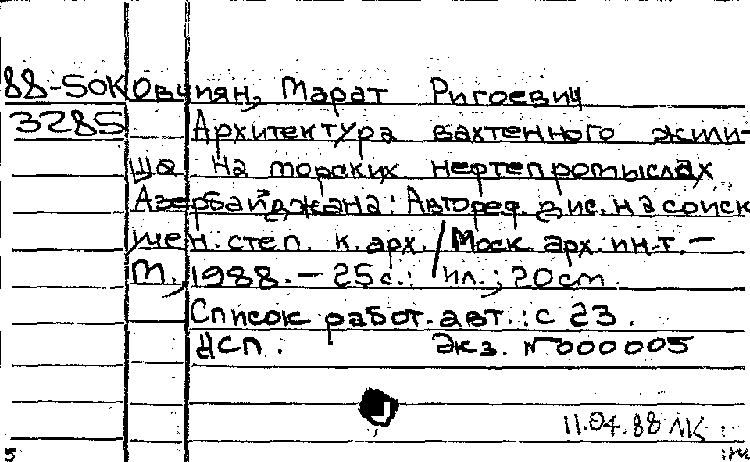 88-50К Овчиян, Марат Ригоевич
3285 Архитектура вахтенного жили-
ща на морских нефтепромыслах
Азербайджана: Автореф. дис. на соиск
учен. степ. к. арх. / Моск. арх. ин-т. -
М., 1988. - 25 с.: ил.; 20 см.
Список работ. авт.: с 23.
ДСП. Экз. №000005
11.04.88 ЛК
5